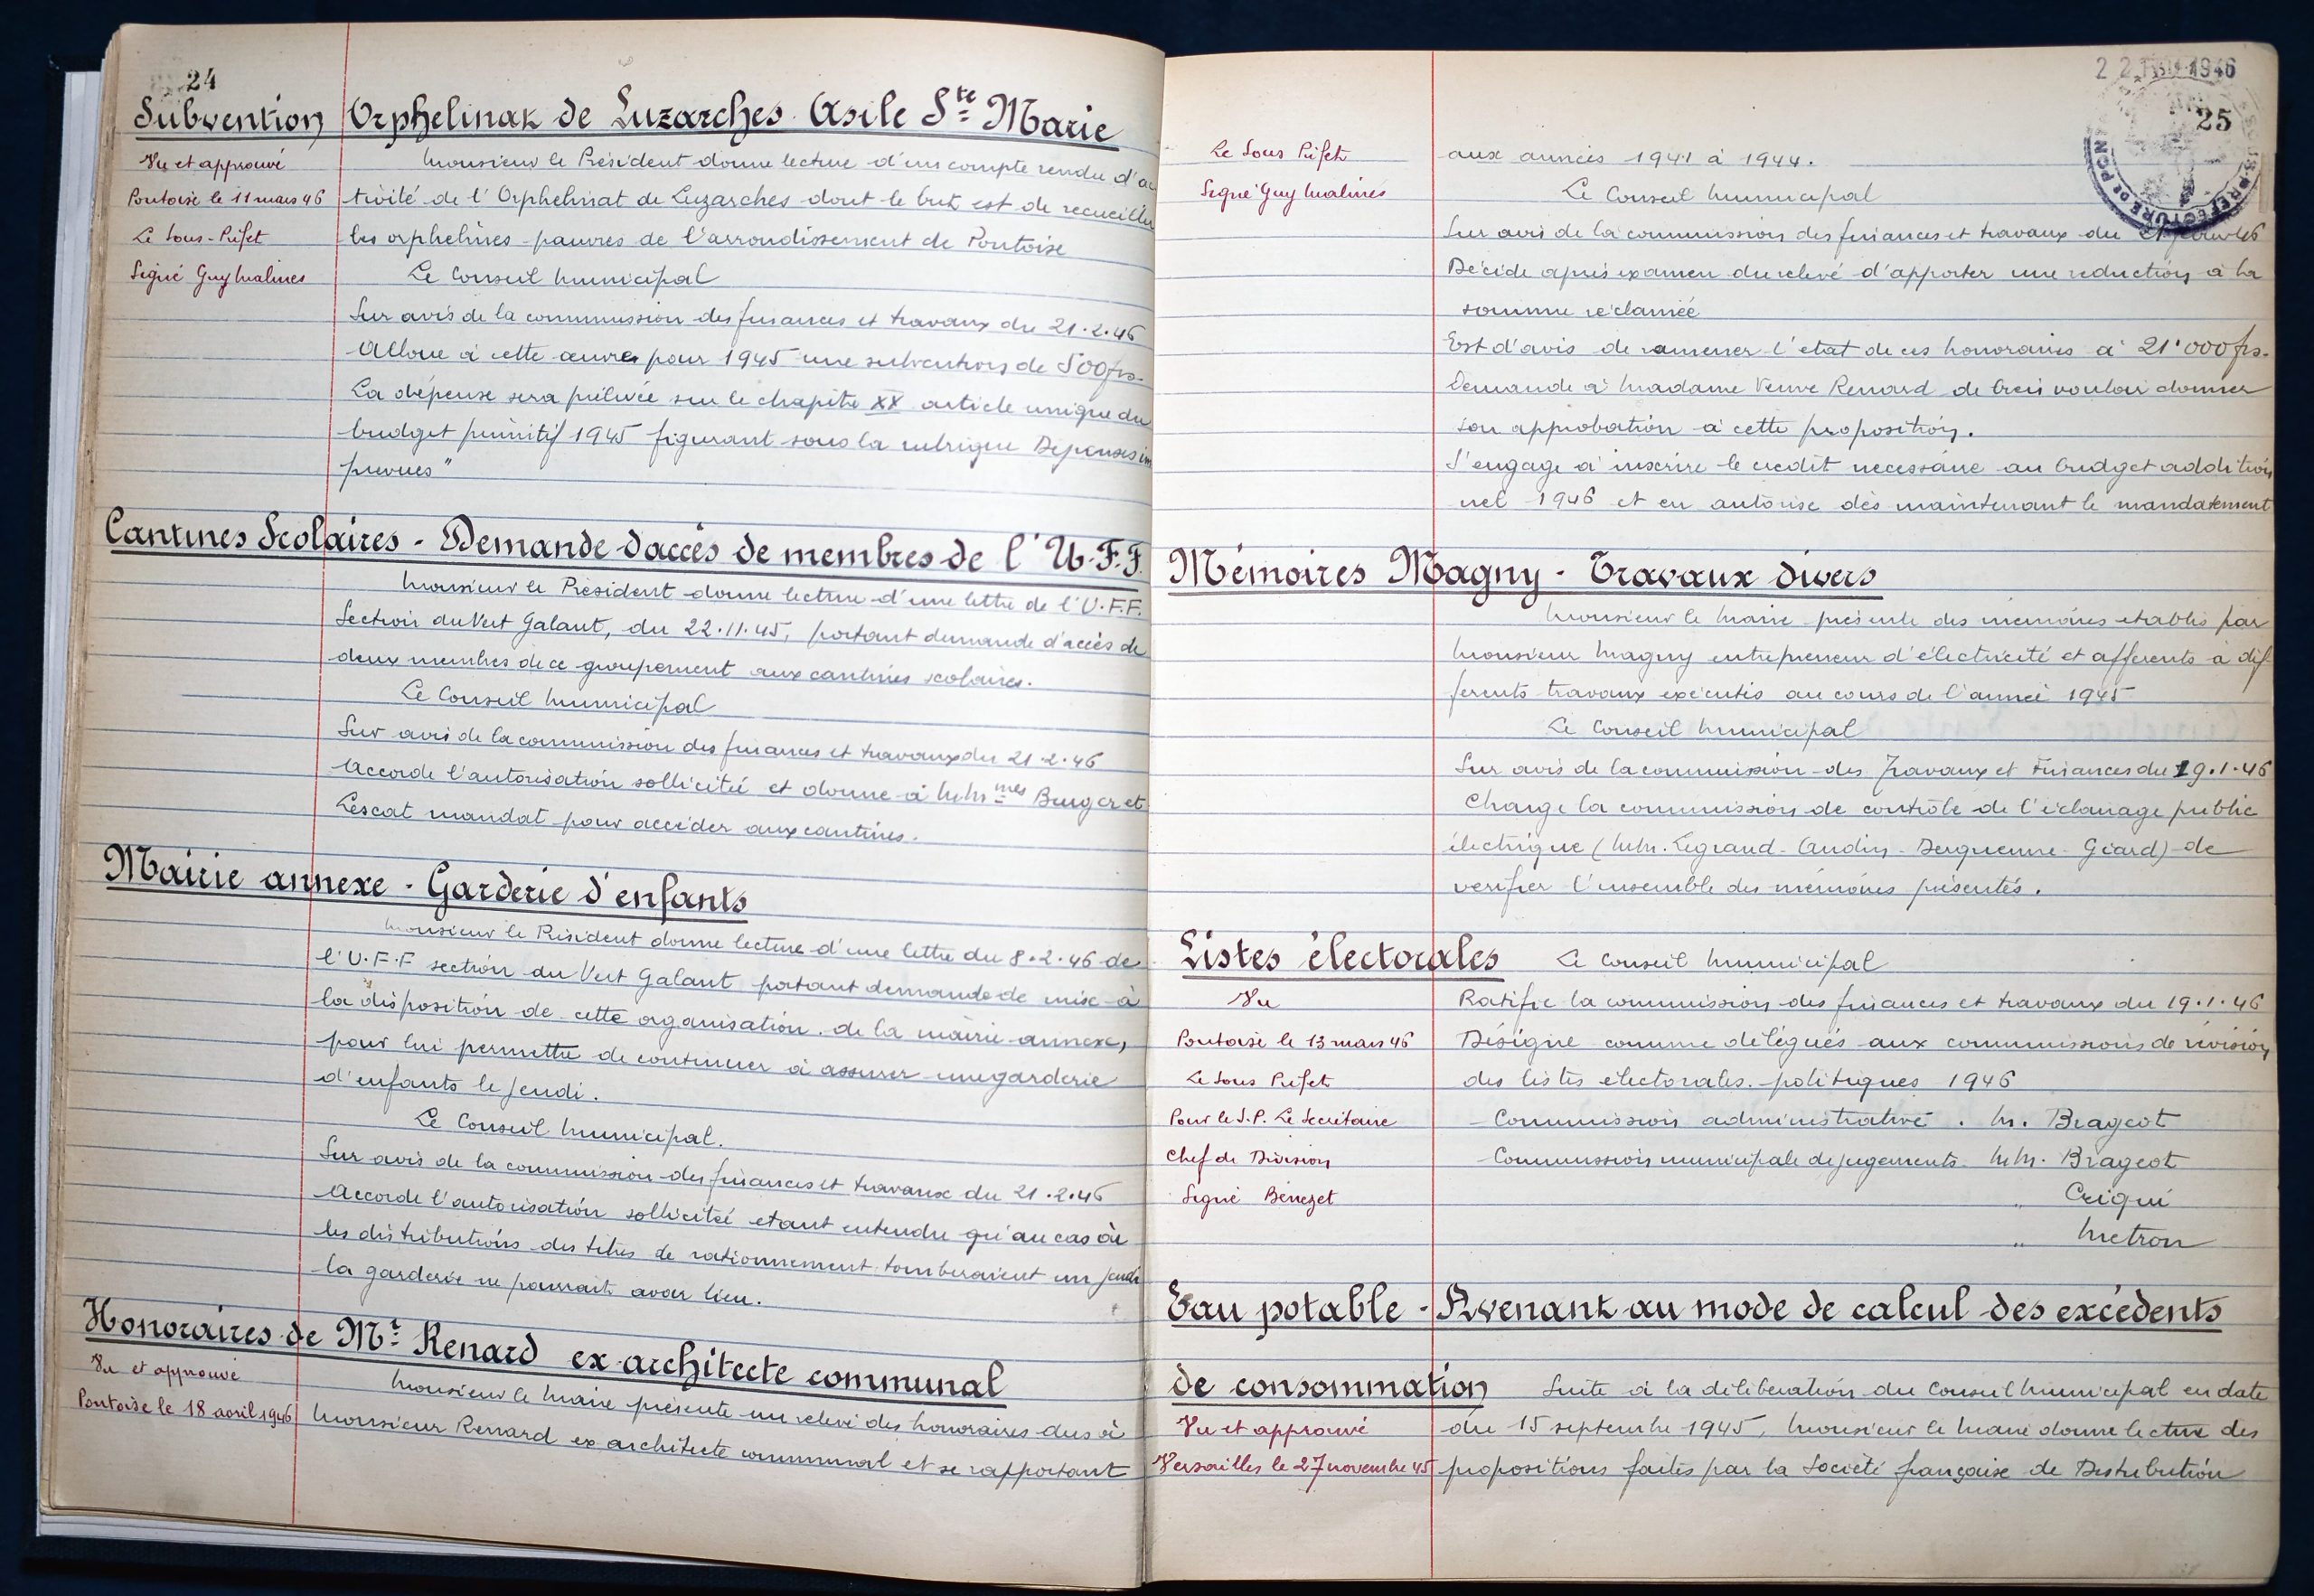 24
Subvention Orphelinat de Luzarches Asile Ste Marie
Vu et approuvé
Pontoise le 11 mars 46
Le Sous-Préfet
Signé Guy Malines
Monsieur le Président donne lecture d'un compte rendu d'ac
tivité de l'Orphelinat de Luzarches dont le but est de recueillir
les orphelines pauvres de l'arrondissement de Pontoise
Le Conseil Municipal
Sur avis de la commission des finances et travaux du 21.2.46
Alloue à cette œuvre pour 1945 une subvention de 500 frs.
La dépense sera prélevée sur le chapitre XX article unique du
budget primitif 1945 figurant sous la rubrique Dépenses im
prévues"
Cantines Scolaires - Demande d'accès de membres de l'U.F.F.
Monsieur le Président donne lecture d'une lettre de l'U.F.F.
Section du Vert Galant, du 22.11.45, portant demande d'accès de
deux membres de ce groupement aux cantines scolaires.
Le Conseil Municipal
Sur avis de la commission des finances et travaux du 21.2.46
Accorde l'autorisation sollicitée et donne à MMmes Burger et
Lescat mandat pour accéder aux cantines.
Mairie annexe - Garderie d'enfants
Monsieur le Président donne lecture d'une lettre du 8.2.46 de
l'U.F.F section du Vert Galant portant demande de mise à
la disposition de cette organisation de la mairie annexe,
pour lui permettre de continuer à assurer une garderie
d'enfants le jeudi.
Le Conseil Municipal.
Sur avis de la commission des finances et travaux du 21.2.46
Accorde l'autorisation sollicitée étant entendu qu'au cas où
les distributions des titres de rationnement tomberaient un jeudi
la garderie ne pourrait avoir lieu.
Honoraires de Mr Renard ex architecte communal
Vu et approuvé
Pontoise le 18 avril 1946
Monsieur le Maire présente un relevé des honoraires dus à
Monsieur Renard ex architecte communal et se rapportant
1946
25
Le Sous Préfet
Signé Guy Malines
aux années 1941 à 1944.
Le Conseil Municipal
Sur avis de la commission des finances et travaux du 21 février 46
Décide après examen du relevé d'apporter une réduction à la
somme réclamée
Est d'avis de ramener l'état de ces honoraires à 21'000 frs.
Demande à Madame Veuve Renard de bien vouloir donner
son approbation à cette proposition.
S'engage à inscrire le crédit nécessaire au budget addition
nel 1946 et en autorise dès maintenant le mandatement
Mémoires Magny - Travaux divers
Monsieur le Maire présente des mémoires établis par
Monsieur Magny entrepreneur d'électricité et afférents à dif
férents travaux exécutés au cours de l'année 1945
Le Conseil Municipal
Sur avis de la commission des Travaux et Finances du 19.1.46
Charge la commission de contrôle de l'éclairage public
électrique (MM. Legrand - Audin - Derquenne - Géard) de
vérifier l'ensemble des mémoires présentés.
Listes électorales Le Conseil Municipal
Vu
Pontoise le 13 mars 46
Le Sous Préfet
Pour le S.P. Le Secrétaire
Chef de Division
Signé Bénezet
Ratifie la commission des finances et travaux du 19.1.46
Désigne comme délégués aux commissions de révision
des listes électorales politiques 1946
- Commission administrative . M. Brageot
- Commission municipale de jugements MM. Brageot
" Criqui
" Metron
Eau potable - Avenant au mode de calcul des excédents
de consommation Suite à la délibération du Conseil Municipal en date
Vu et approuvé
Versailles le 27 novembre 45
du 15 septembre 1945, Monsieur le Maire donne lecture des
propositions faites par la Société française de Distribution